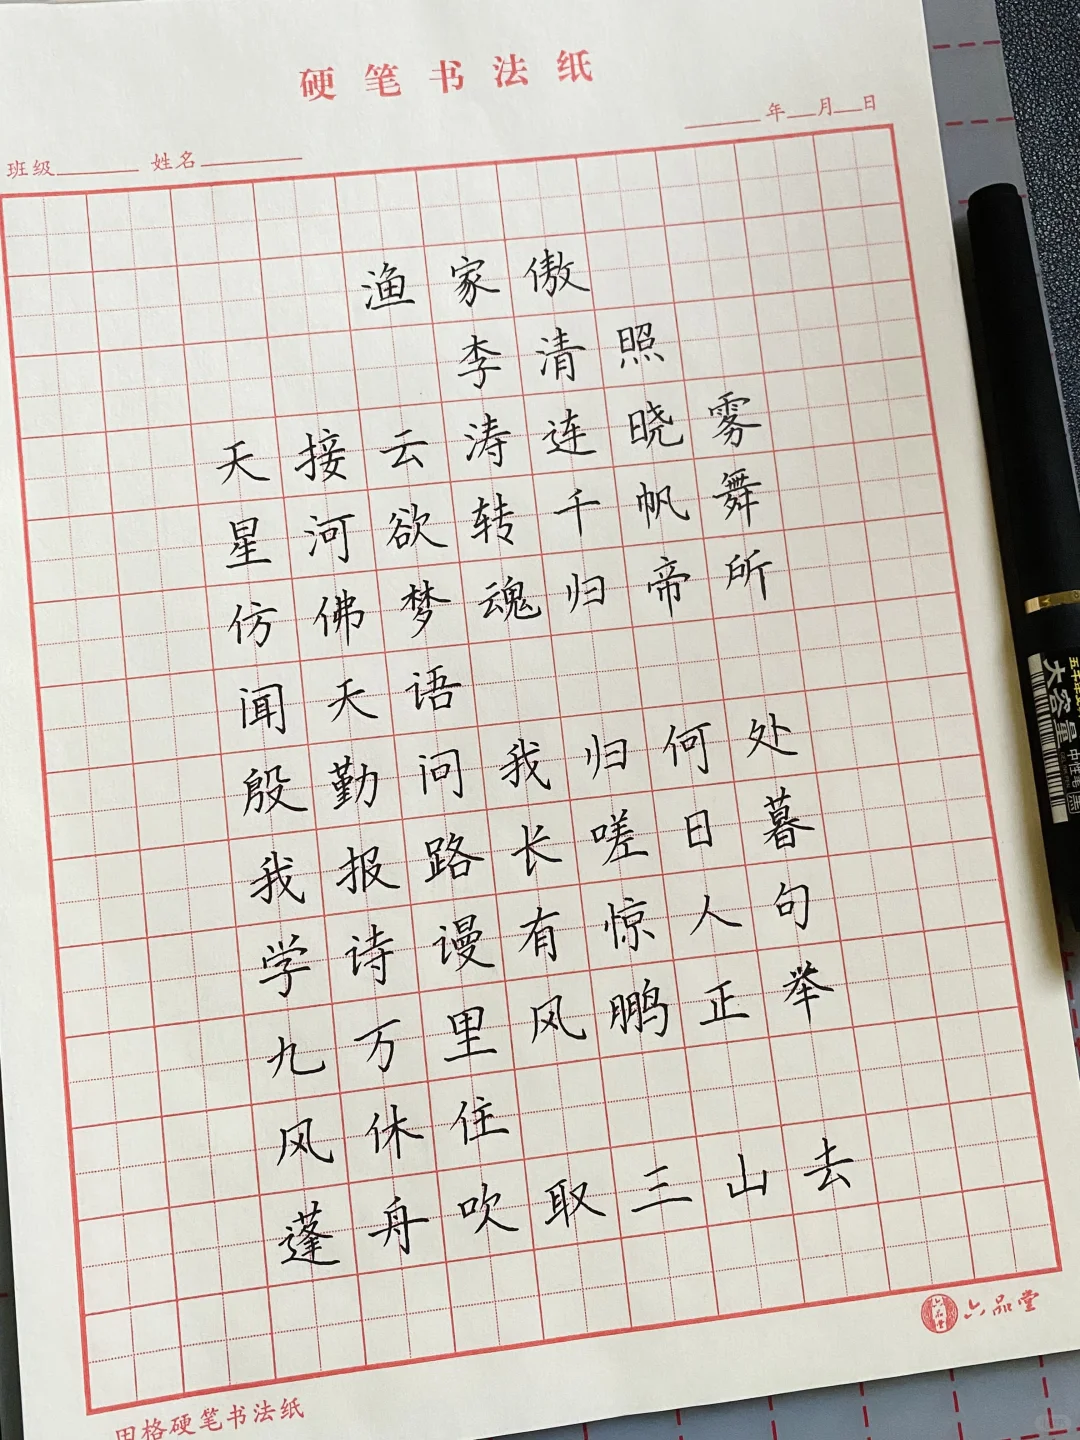 硬笔书法纸
年 月 日
班级 姓名
渔家傲
李清照
天接云涛连晓雾
星河欲转千帆舞
仿佛梦魂归帝所
闻天语
殷勤问我归何处
我报路长嗟日暮
学诗谩有惊人句
九万里风鹏正举
风休住
蓬舟吹取三山去
六品堂
六品堂
田格硬笔书法纸
大容量
中性笔